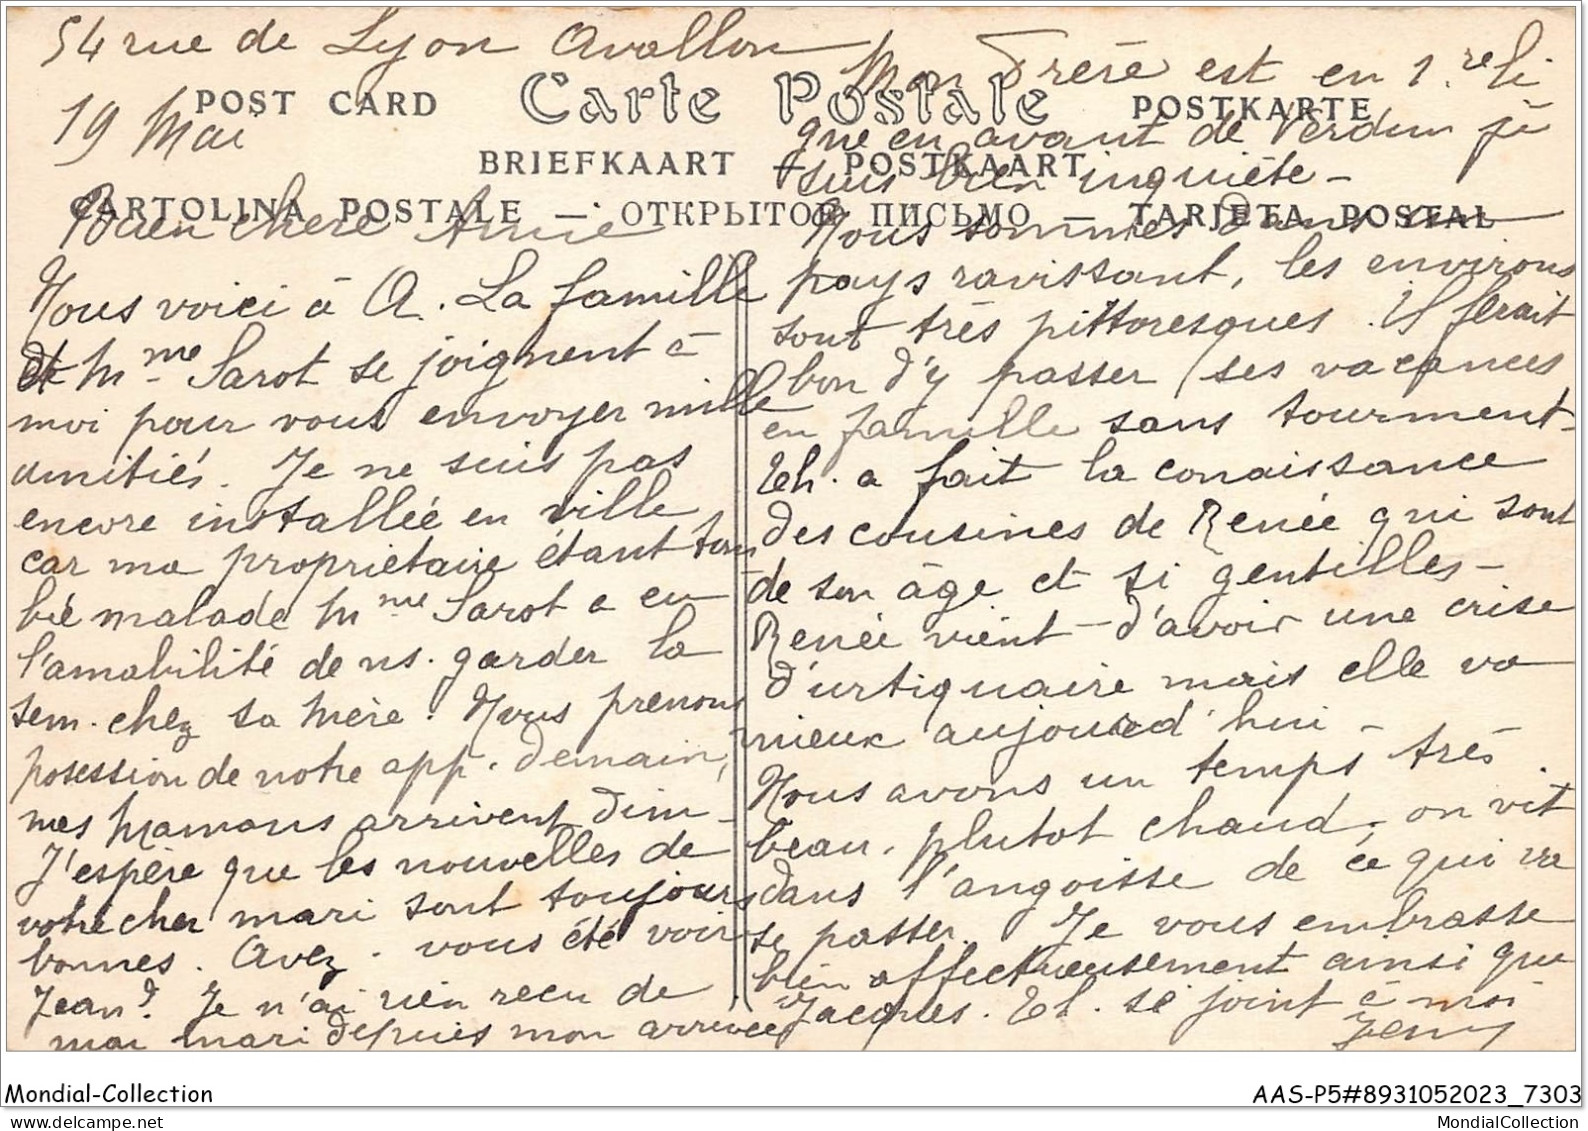 54 rue de Lyon Avallon
19 Mai
POST CARD Carte Postale POSTKARTE
BRIEFKAART — POSTKAART
CARTOLINA POSTALE — ОТКРЫТОЕ ПИСЬМО — TARJETA POSTAL
Bien chère Amie
Nous voici à A. La famille
et Mme Sarot se joignent à
moi pour vous envoyer mille
amitiés. Je ne suis pas
encore installée en ville
car ma propriétaire étant tom
bée malade Mme Sarot a eu
l'amabilité de ns. garder la
sem. chez sa mère. Nous prenons
posession de notre app. demain,
mes Mamans arrivent dim-
J'espère que les nouvelles de
votre cher mari sont toujours
bonnes. Avez-vous été voir
Jean? Je n'ai rien recu de
mon mari depuis mon arrivée
Mon Frère est en 1.re li
gne en avant de Verdun je
suis bien inquiète-
Nous sommes dans un
pays ravissant, les environs
sont très pittoresques. Il ferait
bon d'y passer ses vacances
en famille sans tourment-
Eh. a fait la conaissance
des cousines de Renée qui sont
de son âge et si gentilles-
Renée vient d'avoir une crise
d'urtiquaire mais elle va
mieux aujourd'hui-
Nous avons un temps très
beau, plutot chaud, on vit
dans l'angoisse de ce qui va
se passer. Je vous embrasse
bien affectueusement ainsi que
Jacques. Eh. se joint à moi
Jeny
Mondial-Collection
AAS-P5#8931052023_7303
MondialCollection.com
MondialCollection